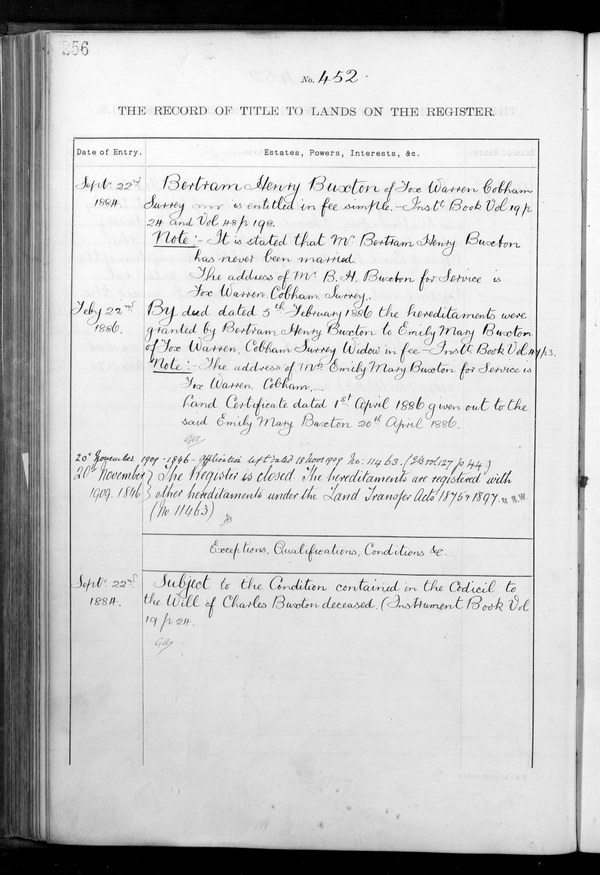 256
No. 452.
THE RECORD OF TITLE TO LANDS ON THE REGISTER.
Date of Entry.
Estates, Powers, Interests, &c.
Septr. 22nd
1884.
Bertram Henry Buxton of Fox Warren Cobham
Surrey is entitled in fee simple. – Inst. Book Vol 19 p
24 and Vol 48 p 198.
Note :- It is stated that Mr Bertram Henry Buxton
has never been married
The address of Mr B. H. Buxton for Service is
Fox Warren Cobham Surrey.
Feby 22nd
1886.
By deed dated 5th February 1886 the hereditaments were
granted by Bertram Henry Buxton to Emily Mary Buxton
of Fox Warren, Cobham Surrey Widow in fee – Inst. Book Vol
Note :- The address of Mrs Emily Mary Buxton for Service is
Fox Warren, Cobham. –
Land Certificate dated 1st April 1886 given out to the
said Emily Mary Buxton 20th April 1886.
20th November 1909 - 1846 - Application left dated 18 Novr 1909 No: 11463. (vol 127 p 44.)
20th November
1909. 1846
The Register is closed. The hereditaments are registered with
other hereditaments under the Land Transfer Acts 1875 & 1897.
(No 11463)
Exceptions, Qualifications, Conditions &c.
Septr. 22nd
1884.
Subject to the Condition contained in the Codicil to
the Will of Charles Buxton deceased. (Instrument Book Vol
19 p 24.